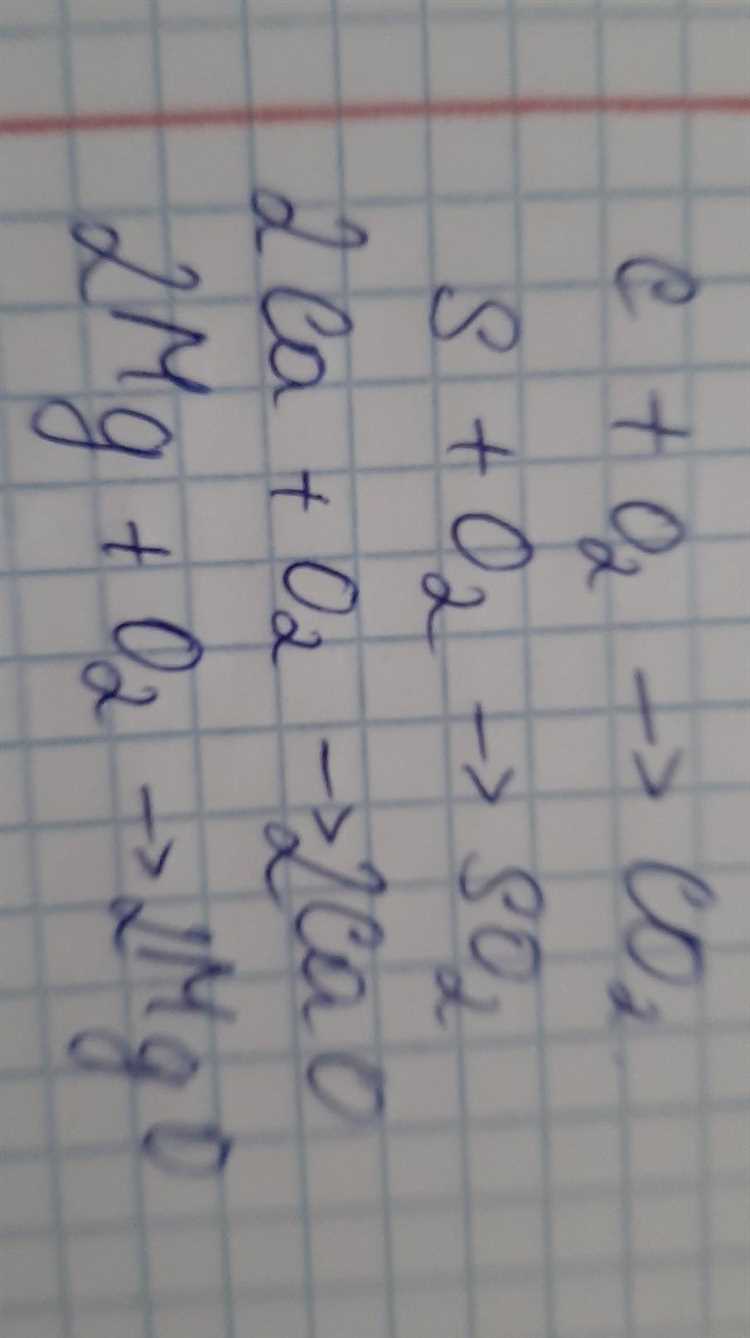 C + O₂ → CO₂
S + O₂ → SO₂
2Ca + O₂ → 2CaO
2Mg + O₂ → 2MgO